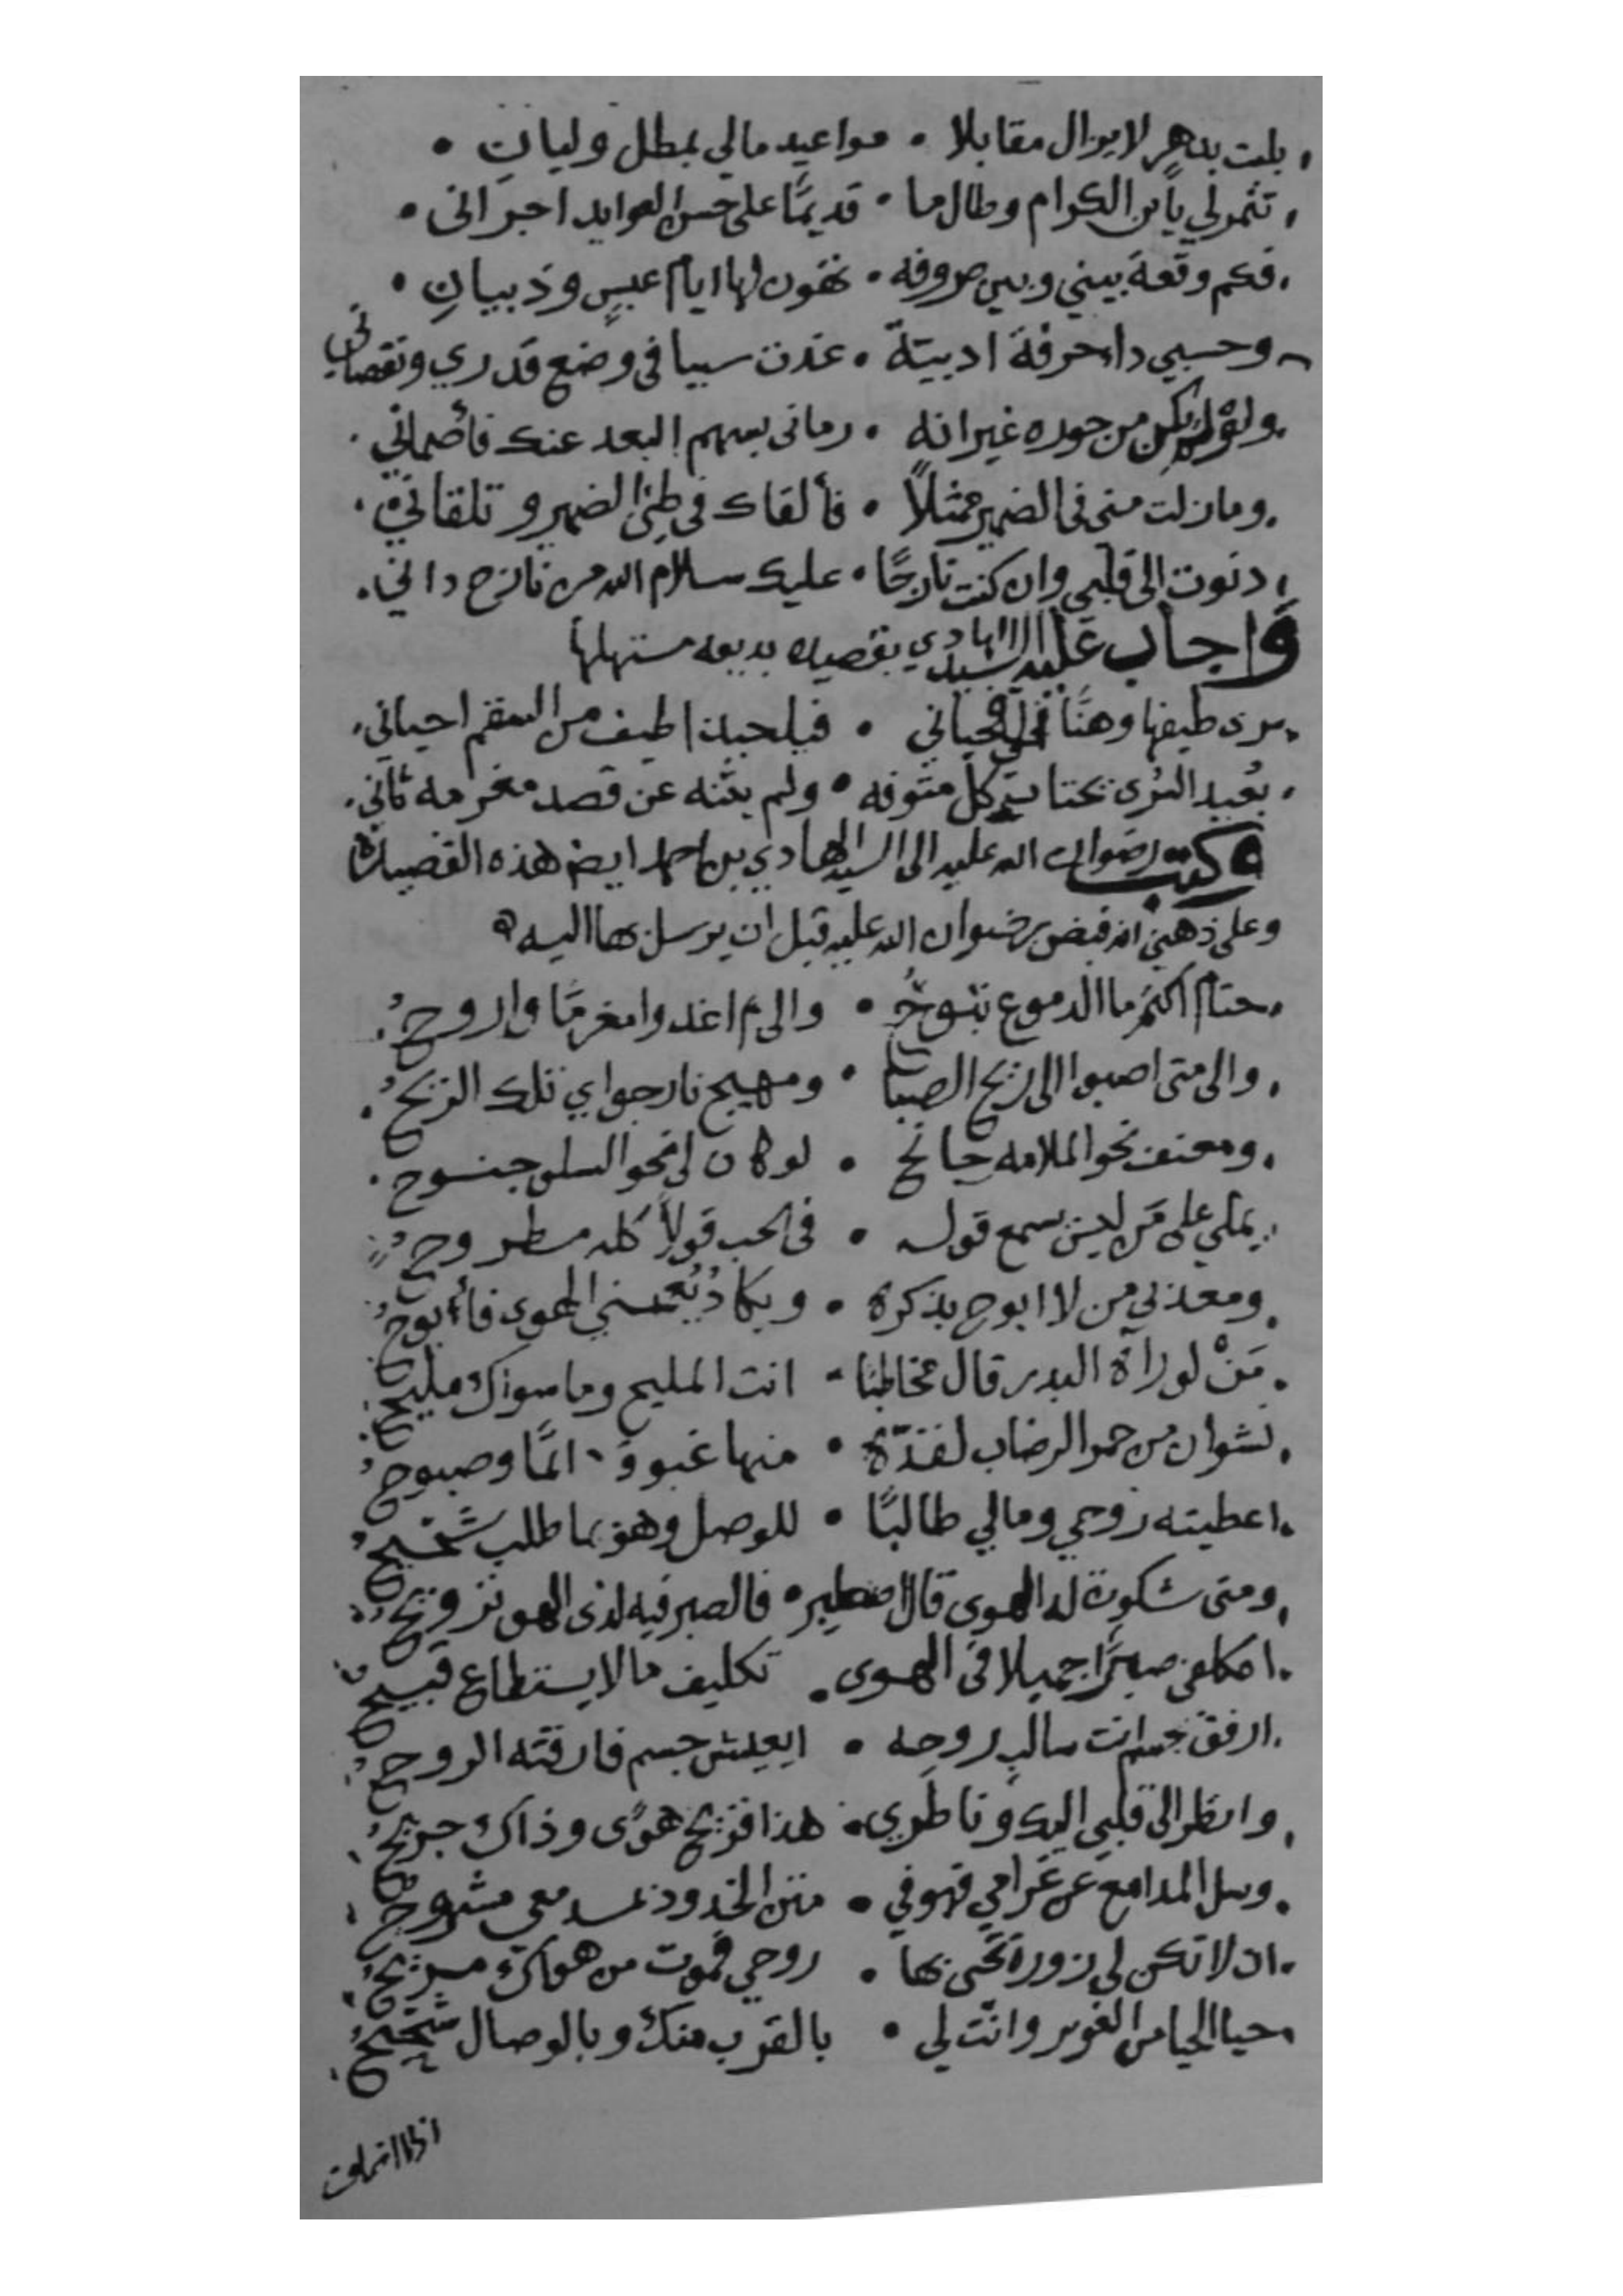 بليت بدهر لا يزال مقابلا • مواعيد مالي بمطل وليان •
تثمر لي يا بن الكرام وطال ما • قديمًا على حسن العوايد اجراني •
فكم وقعة بيني وبين صروفه • تهون لها ايام عبسٍ وذبيانِ •
وحسبي داء حرفة ادبية • غدت سببا في وضع قدري ونقصاني
ولو لم يكن من جوره غير انه • رماني بسهم البعد عنك فأصماني •
وما زلت مني في الضمير ممثلاً • فألقاك في طيّ الضمير وتلقاني •
دنوت الى قلبي وان كنت نازحًا • عليك سلام الله من نازح داني •
وَاجاب عليه السيد الهادي بقصيده بديعه مستهلها
سرى طيفها وهنًا فحياني • فيا حبذا طيف من السقم احياني •
بعيد السُرى يجتاب كل متنوفه • ولم يثنه عن قصد مغرمه ثاني •
وكتب رضوان الله عليه الى السيد الهادي بن احمد ايضا هذه القصيدة
وعلى ذهني انه قبض رضوان الله عليه قبل ان يرسل بها اليه
حتام اكتم ما الدموع تبوحُ • والى م اغدوا مغرمًا واروحُ
والى متى اصبوا الى ريح الصبا • ومهيج نار جواي تلك الريحُ •
ومعنف نحو الملامه جانح • لو كان لي نحو السلو جنوح •
يملي على من ليس يسمع قوله • في الحب قولاً كله مطروحُ
ومعذبي من لا ابوح بذكره • ويكادُ يُعـ ـني الهوى فأبوحُ
مَنْ لو رآه البدر قال مخاطبًا • انت المليح وما سواك مليحُ
نشوان من خمر الرضاب لقدّه • منها غبوق دائمًا وصبوحُ
اعطيته روحي ومالي طالبًا • للوصل وهو بما طلبت شحيحُ
ومتى شكوت له الهوى قال اصطبر • فالصبر فيه لذي الهوى ترويحُ
امكلفي صبرًا جميلا في الهوى • تكليف ما لا يستطاع قبيحُ
ارفق بجسم انت سالب روحِه • ايعيش جسم فارقته الروحُ
وانظر الى قلبي اليك وناظري • هذا قريح هوًى وذاك جريحُ
وسل المدامع عن غرامي فهو في • متن الخدود بمدمعي مشروحُ
ان لا تكن لي زورة تحيى بها • روحي فموت من هواك مريحُ
حيا الحيا من الغوير وانت لي • بالقرب منك وبالوصال شحيحُ